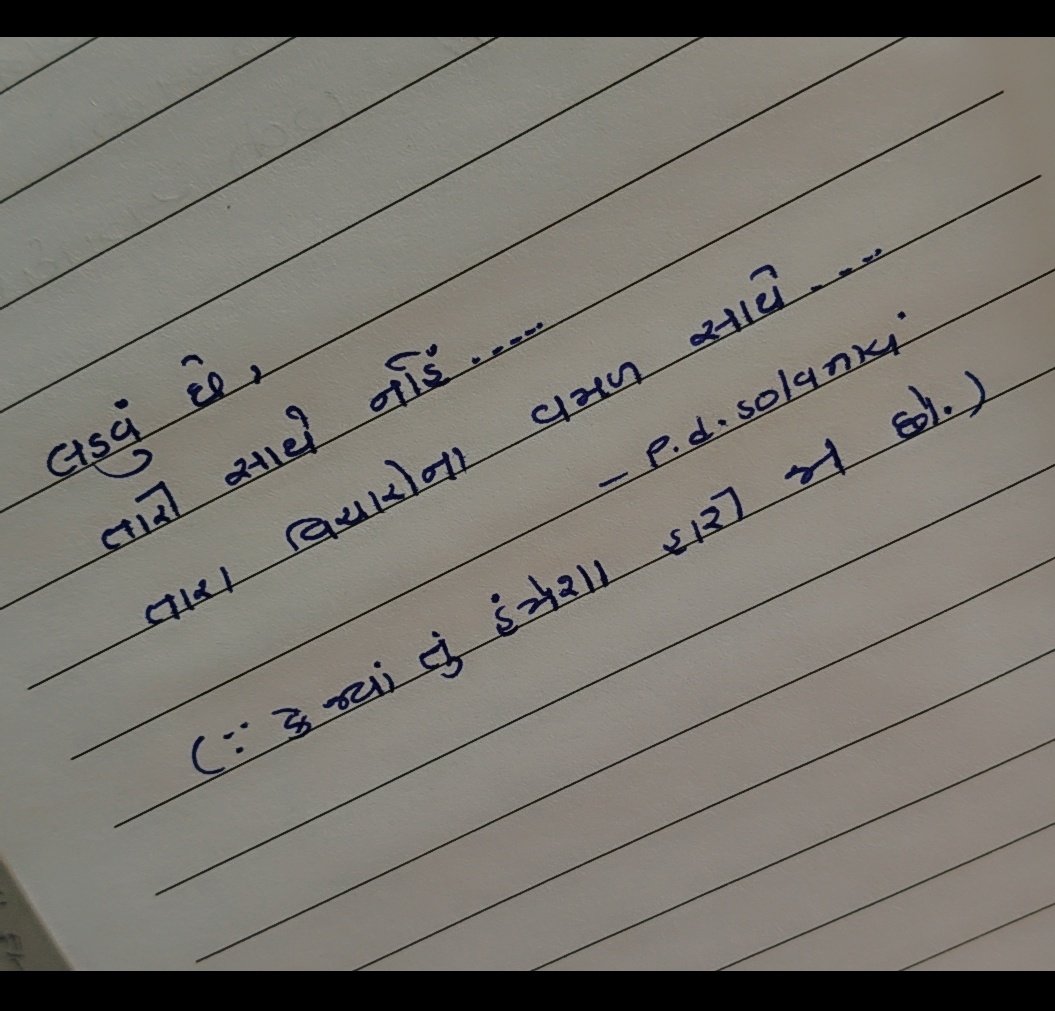 લડવું છે,
તારી સાથે નહિં.....
તારા વિચારોના વમળ સાથે....
– P.d. solanki
(∵ કે જ્યાં તું હંમેશા હારી જ છો.)